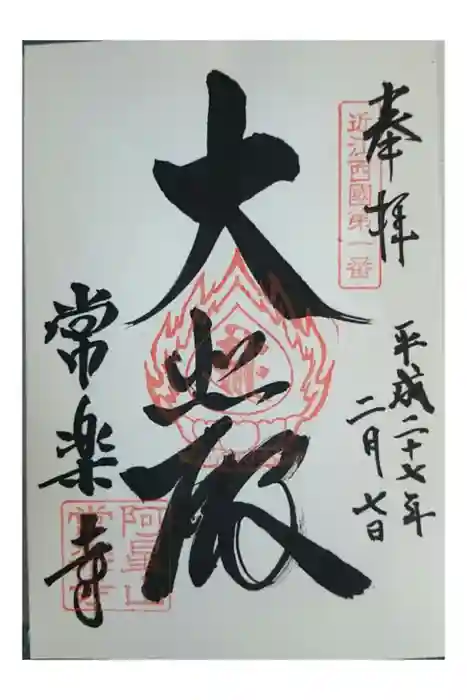 奉拝
近江西國第一番
平成二十七年
二月七日
大悲殿
常楽寺
阿星山